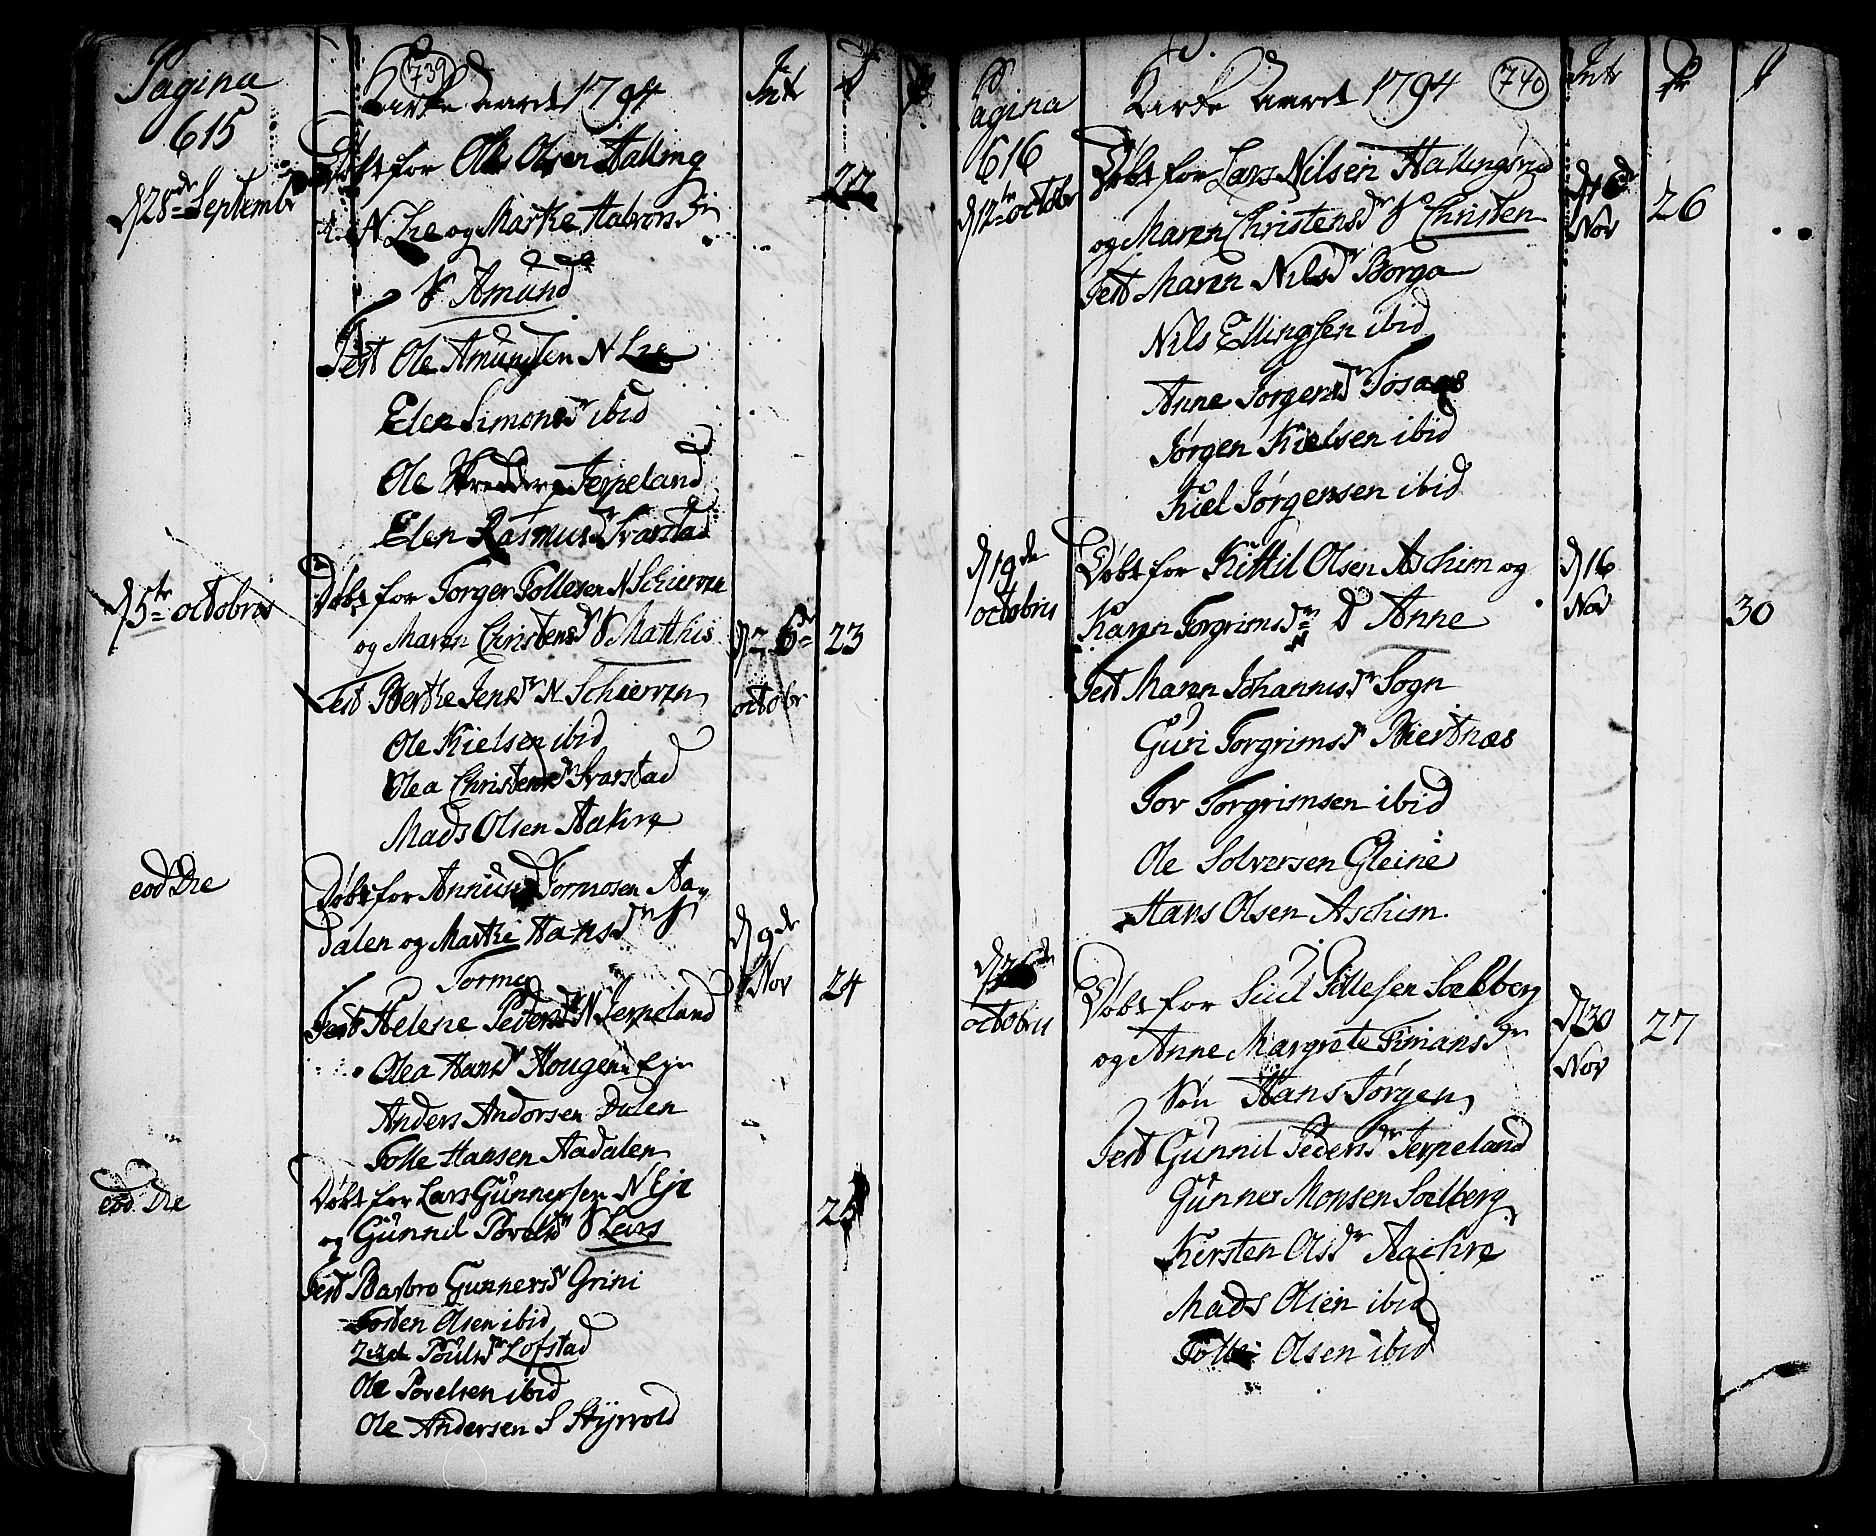 Pagina
615
739
Kirke Aaret 1794
Int
d 28de Septembr
Døbt for Ole Olsen Halling
N Lie og Marthe Halvorsdr
22
S Amund
Test Ole Amundsen N Lie
Elen Simonsdr ibid
Ole Jerpeland
Elen Rasmusdr Svarstad
d 5te octobris
Døbt for Torger Tollesen N Schierven
og Maren Christensdr S Matthis
d 26de
octobr
23
Test Berthe Jensdr N Schierven
Ole Kielsen ibid
Olea Christensdr Svarstad
Mads Olsen Aakre
eod Die
Døbt for Tormosen Aa
dalen og Marthe Hansdr S
Tormo
d 9de
Nov
24
Test Helene Pedersdr N Jerpeland
Olea Hansdr Hougens eje
Anders Andorsen Dalen
Tolle Hansen Aadalen
eod. Die
Døbt for Lars Gunnersen N Eje
og Gunnil Povelsdr S Lars
25
Test Barbro Gunnersdr Grini
Tosten Olsen ibid
Poulsdr Lofstad
Ole Povelsen ibid
Ole Andersen S Styrvold
Pagina
616
Kirke Aaret 1794
740
Intr
d 12te octobr
Døbt for Lars Nilsen Hallingsrud
og Maren Christensdr S Christen
d 16de
Nov
26
Test Maren Nilsdr Borga
Nils Ellingsen ibid
Anne Jørgensdr Tosaas
Jørgen Kielsen ibid
Kiel Jørgensen ibid
d 19de
octobris
Døbt for Kittil Olsen Aschim og
Karen Torgrimsdr D Anne
d 16
Nov
30
Test Maren Johannisdr Sogn
Guri Torgrimsdr Biertnæs
Tor Torgrimsen ibid
Ole Solversen Gleine
Hans Olsen Aschim
d 26de
octobris
Døbt for Siul Tollesen Soelberg
og Anne Margrete Timansdr
Søn Hans Jørgen
d 30
Nov
27
Test Gunnil Pedersdr Jerpeland
Gunner Monsen Soelberg
Kirsten Olsdr Aachre
Mads Olsen ibid
Tolle Olsen ibid